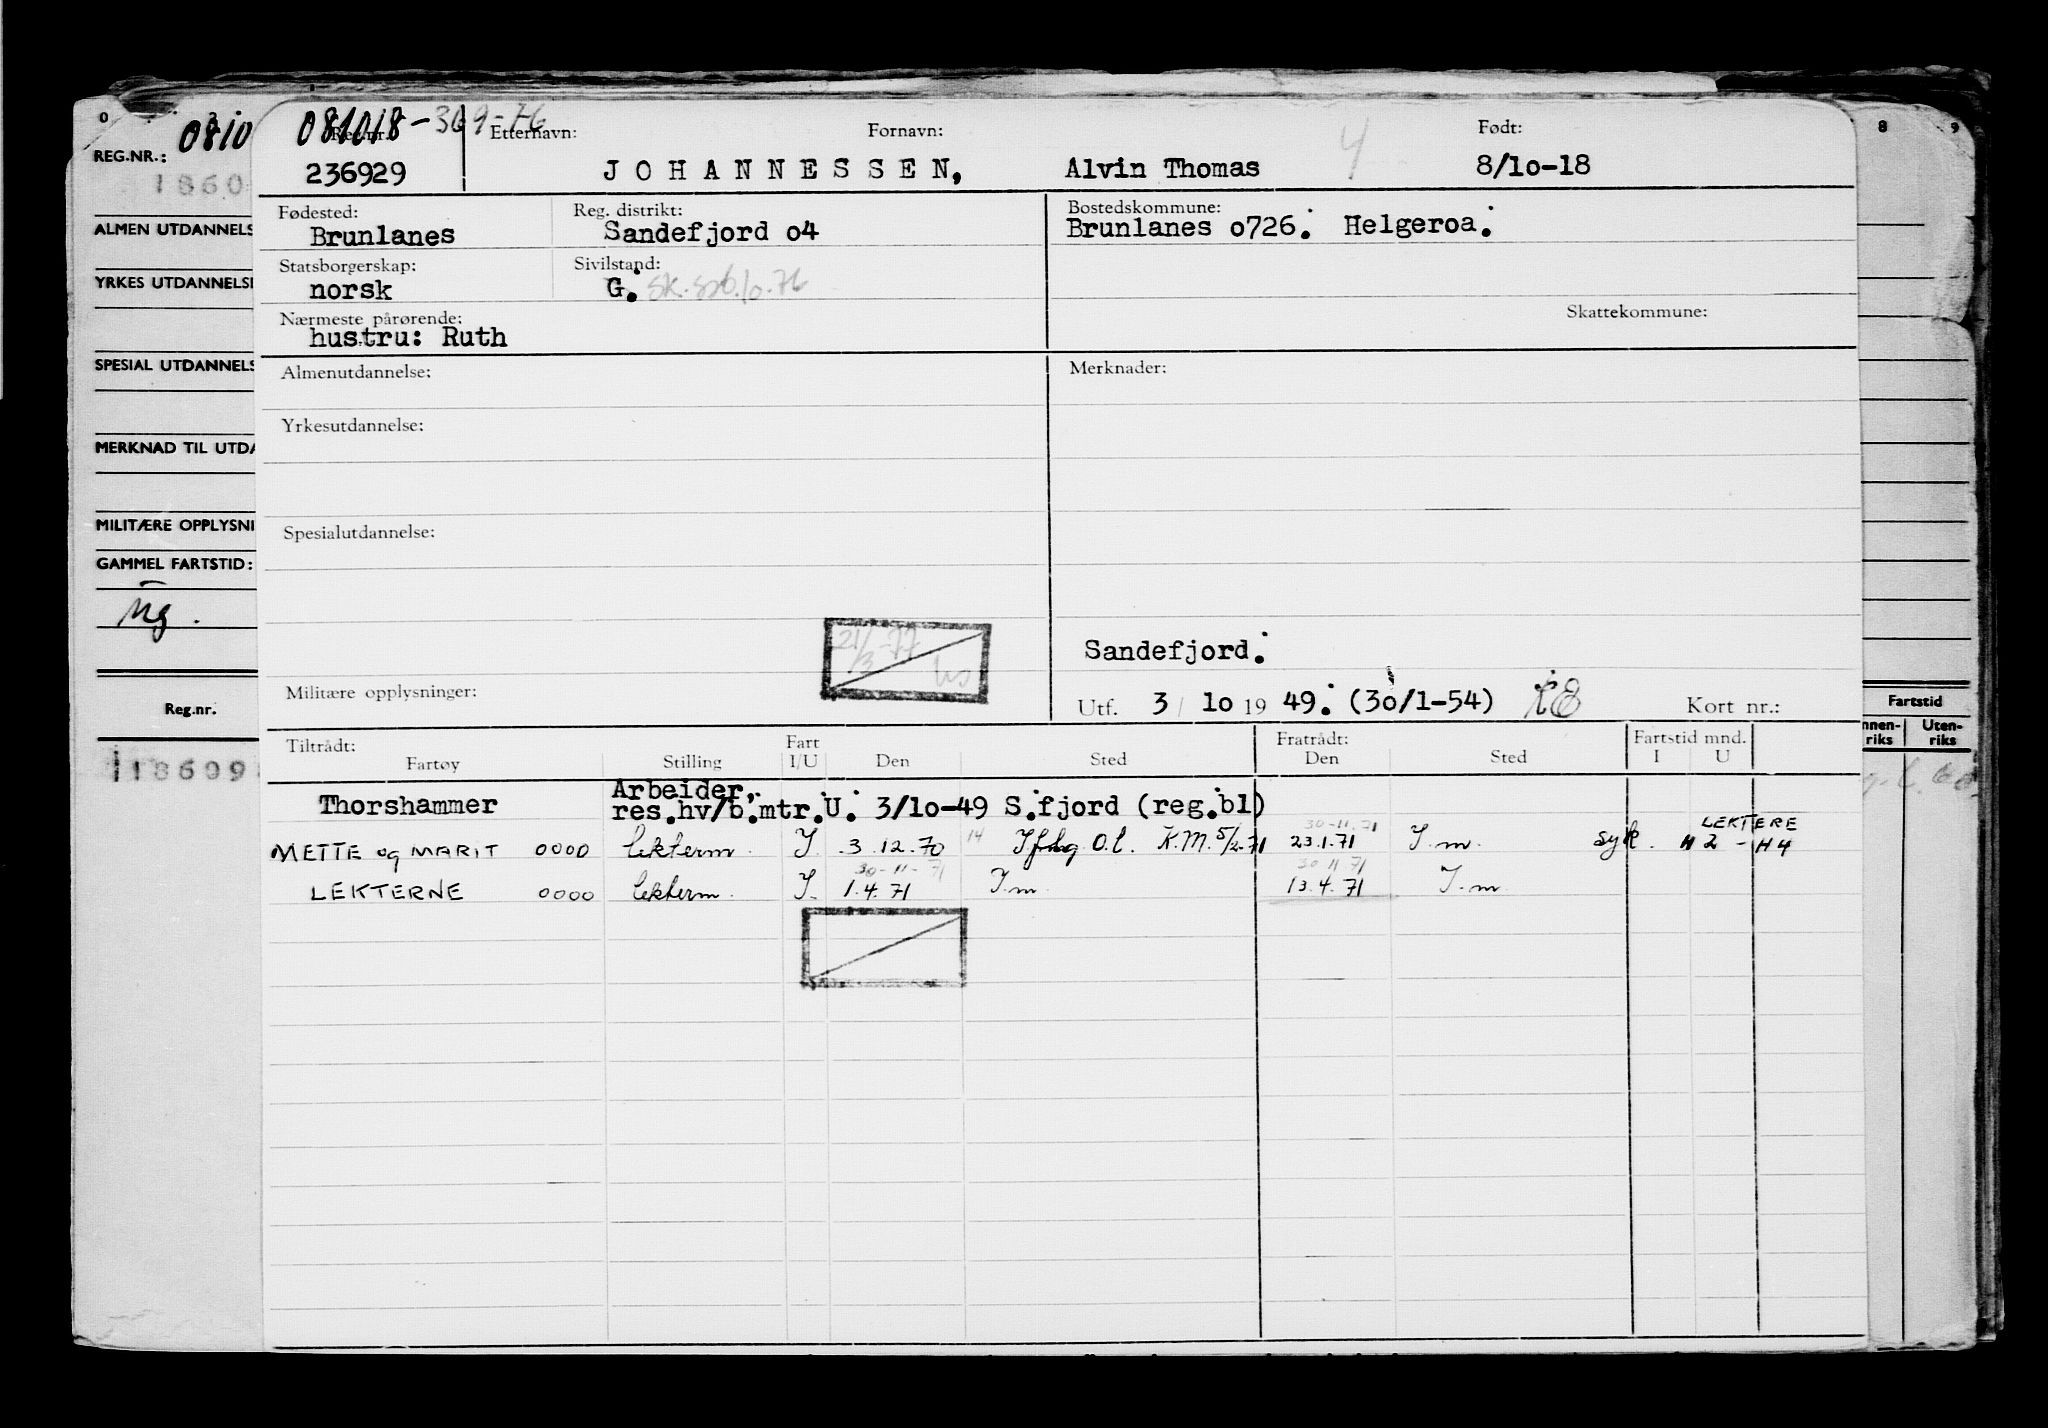 081018-369-76
Reg.nr. Etternavn: Fornavn: Født:
236929 JOHANNESSEN, Alvin Thomas 4 8/10-18
Fødested: Reg. distrikt: Bostedskommune:
Brunlanes Sandefjord o4 Brunlanes o726. Helgeroa.
Statsborgerskap: Sivilstand:
norsk G.
Nærmeste pårørende: Skattekommune:
hustru: Ruth
Almenutdannelse: Merknader:
Yrkesutdannelse:
Spesialutdannelse:
21/3-77
Sandefjord.
Militære opplysninger: Utf. 3/10 1949. (30/1-54) Kort nr.:
Tiltrådt: Fratrådt: Fartstid mnd.
Fartøy Stilling Fart I/U Den Sted Den Sted I U
Arbeider,
Thorshammer res.hv/b.mtr. U. 3/10-49 S.fjord (reg.bl)
30-11.71 LEKTERE
METTE og MARIT 0000 lekterm. I. 3.12.70 14 O.l. K.M. 5/2-71 23.1.71 I.m. syk. H 2 - H 4
30-11-71 30 11 71
LEKTERNE 0000 lekterm. I. 1.4.71 I.m. 13.4.71 I.m.
0810
REG.NR.:
1860
ALMEN UTDANNELS
YRKES UTDANNELSE
SPESIAL UTDANNELS
MERKNAD TIL UTDA
MILITÆRE OPPLYSNI
GAMMEL FARTSTID:
Reg.nr.
118609
8 9
Fartstid
nnen-riks Uten-riks